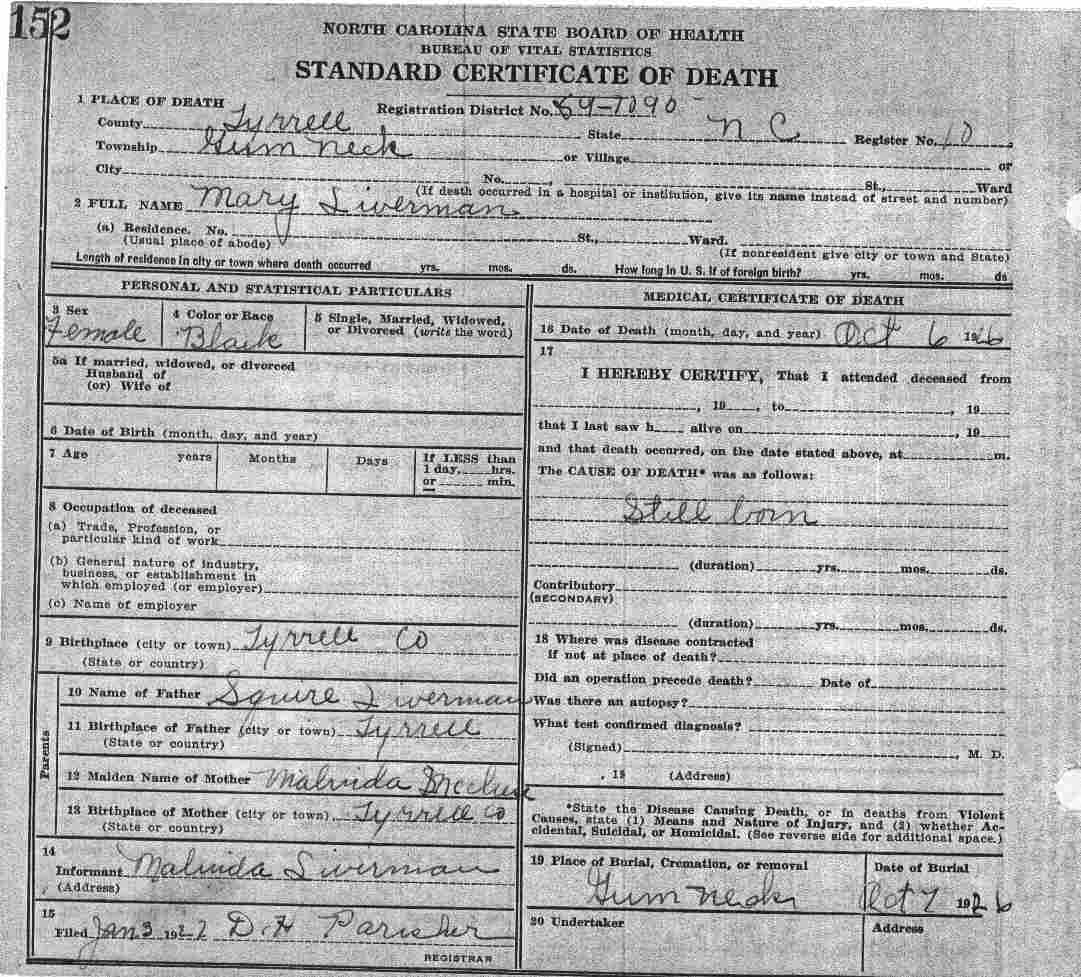 152
NORTH CAROLINA STATE BOARD OF HEALTH
BUREAU OF VITAL STATISTICS
STANDARD CERTIFICATE OF DEATH
1 PLACE OF DEATH Registration District No. 89-7090
County Tyrrell State N C Register No. 10
Township Gum Neck or Village or
City No. , St., Ward
(If death occurred in a hospital or institution, give its name instead of street and number)
2 FULL NAME Mary Liverman
(a) Residence. No. St., Ward.
(Usual place of abode) (If nonresident give city or town and State)
Length of residence in city or town where death occurred yrs. mos. ds. How long in U. S. if of foreign birth? yrs. mos. ds
PERSONAL AND STATISTICAL PARTICULARS
3 Sex 4 Color or Race 5 Single, Married, Widowed,
or Divorced (write the word)
Female Black
5a If married, widowed, or divorced
Husband of
(or) Wife of
6 Date of Birth (month, day, and year)
7 Age years Months Days If LESS than
1 day, hrs.
or min.
8 Occupation of deceased
(a) Trade, Profession, or
particular kind of work
(b) General nature of industry,
business, or establishment in
which employed (or employer)
(c) Name of employer
9 Birthplace (city or town) Tyrrell Co
(State or country)
Parents
10 Name of Father Squire Liverman
11 Birthplace of Father (city or town) Tyrrell
(State or country)
12 Maiden Name of Mother Malvida
13 Birthplace of Mother (city or town) Tyrrell Co
(State or country)
14
Informant Malinda Liverman
(Address)
15
Filed Jan 3 1927 D. H Parisher
REGISTRAR
MEDICAL CERTIFICATE OF DEATH
16 Date of Death (month, day, and year) Oct 6 1926
17
I HEREBY CERTIFY, That I attended deceased from
, 19 , to , 19
that I last saw h alive on , 19
and that death occurred, on the date stated above, at m.
The CAUSE OF DEATH* was as follows:
Still born
(duration) yrs. mos. ds.
Contributory
(SECONDARY)
(duration) yrs. mos. ds.
18 Where was disease contracted
if not at place of death?
Did an operation precede death? Date of
Was there an autopsy?
What test confirmed diagnosis?
(Signed) , M. D.
, 19 (Address)
*State the Disease Causing Death, or in deaths from Violent
Causes, state (1) Means and Nature of Injury, and (2) whether Ac-
cidental, Suicidal, or Homicidal. (See reverse side for additional space.)
19 Place of Burial, Cremation, or removal Date of Burial
Gum Neck Oct 7 1926
20 Undertaker Address